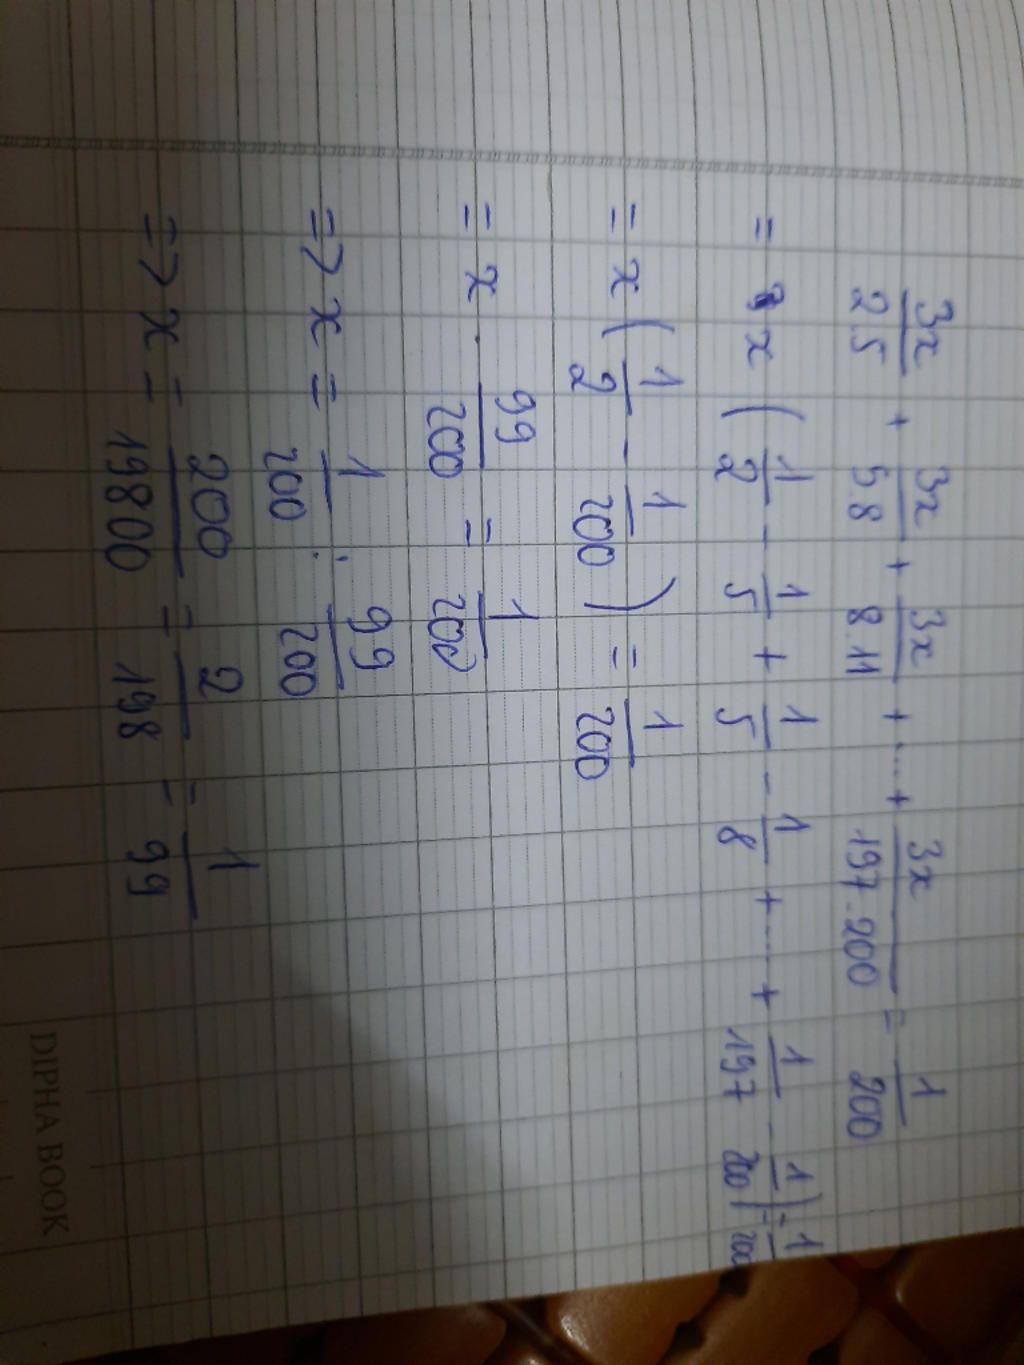 3x/2.5 + 3x/5.8 + 3x/8.11 + .... + 3x/197.200 = 1/200
= x ( 1/2 - 1/5 + 1/5 - 1/8 + ..... + 1/197 - 1/200 ) = 1/200
= x ( 1/2 - 1/200 ) = 1/200
= x . 99/200 = 1/200
=> x = 1/200 : 99/200
=> x = 200/19800 = 2/198 = 1/99
DIPHA BOOK